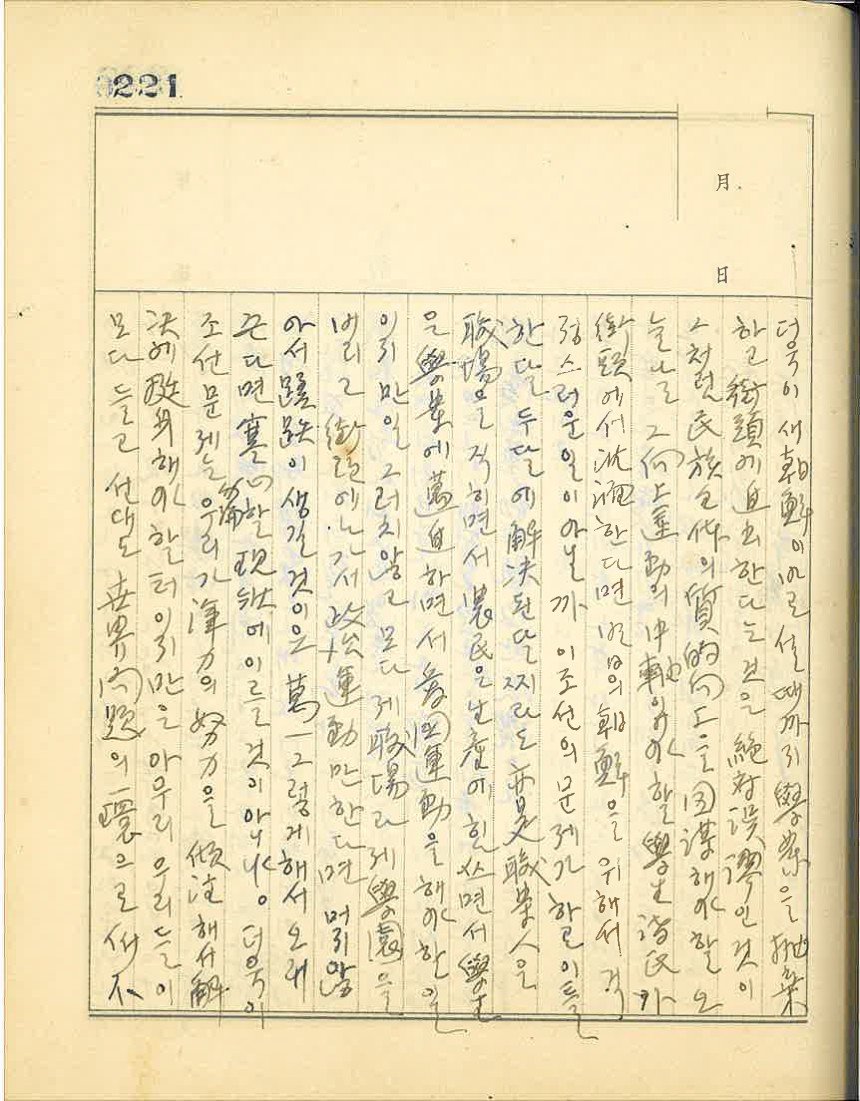 221
月.
日
더욱이 새朝鮮이 바로설때까지 學業을 抛棄
하고 街頭에 進出한다는 것은 絶対誤謬인 것이
그처럼 民族全体의 質的向上을 圖謀해야할 오
늘날 그向上運動의 中軸이야할 學生諸氏가
街頭에서 沈滯한다면 明日의 朝鮮을 위해서 걱
정스러운일이 아닐까 이조선의 문제가 하로이틀
한달 두달에 解决된달찌라도 亦是 職業人은
職場을 직하면서 農民은 生産에 힘쓰면서 學生
은 學業에 邁進하면서 愛國運動을 해야한일
이지만일 그러치않고 모다 제職場과 제學園을
버리고 街頭에 나가서 政治運動만한다면 머지않
아서 蹉跌이 생길것이은 萬一 그렇게해서 오래
끈다면 寒心할 現狀에 이를것이 아니냐。더욱이
조선문제는 우리가 渾力의 努力을 傾注해서 解
決에 投身해야할터이지만은 아무리 우리들이
모다 들고 선대도 世界問題의 一環으로 싸不